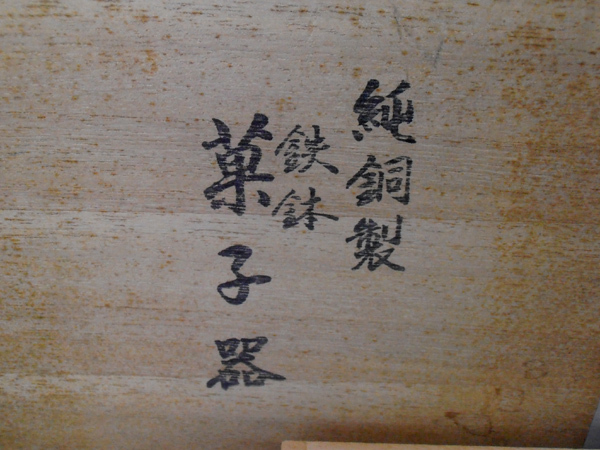 純銅製
鉄鉢
菓子器